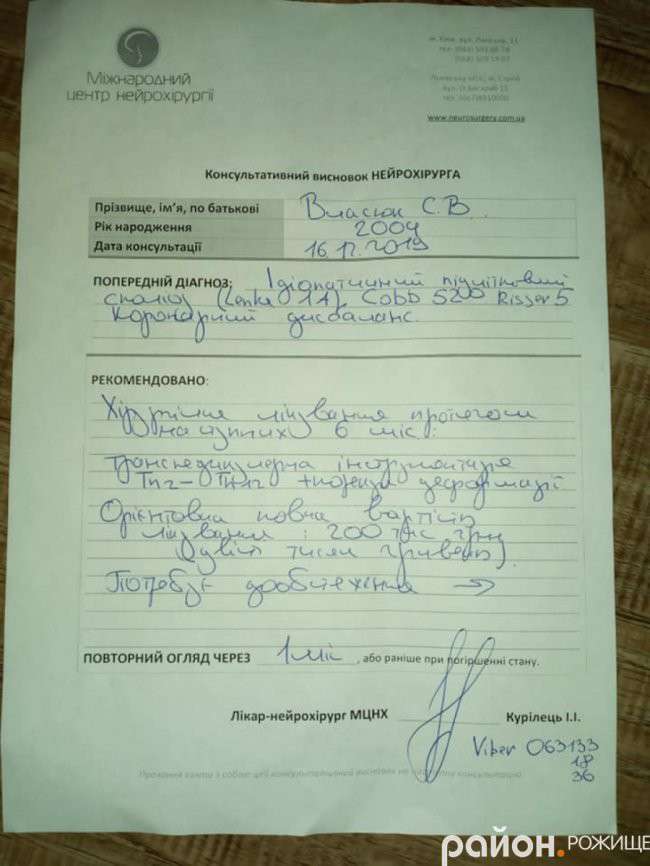 Міжнародний
центр нейрохірургії
www.neurosurgery.com.ua
Консультативний висновок НЕЙРОХІРУРГА
Прізвище, ім'я, по батькові Власюк С.В
Рік народження 2004
Дата консультації 16.12.2019
ПОПЕРЕДНІЙ ДІАГНОЗ: Ідіопатичний підлітковий
сколіоз (Lenke 1A), Cobb 52° Risser 5
Коронарний дисбаланс.
РЕКОМЕНДОВАНО:
Хірургічне лікування протягом
наступних 6 міс:
транспедикулярна інструментація
+ корекція деформації
Орієнтовна повна вартість
лікування: 200 тис грн
(двісті тисяч гривень).
Потребує дообстеження →
ПОВТОРНИЙ ОГЛЯД ЧЕРЕЗ 1 міс, або раніше при погіршенні стану.
Лікар-нейрохірург МЦНХ Курілець І.І.
Viber 063133
18
36
Прохання взяти з собою цей консультаційний висновок на наступну консультацію
район.РОЖИЩЕ